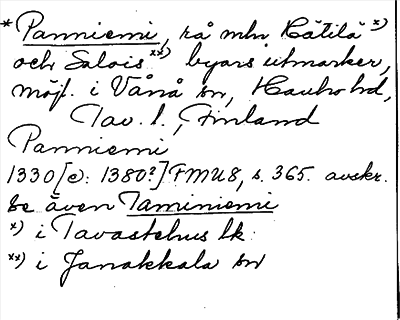 * Panniemi, rå mln Hätilä x)
och Salois xx) byars utmarker,
möjl. i Vånå sn, Hauho hd,
Tav. l., Finland
Panniemi
1330 [o: 1380?] FMU 8, s. 365. avskr.
Se även Taminiemi
x) i Tavastehus lk.
xx) i Janakkala sn